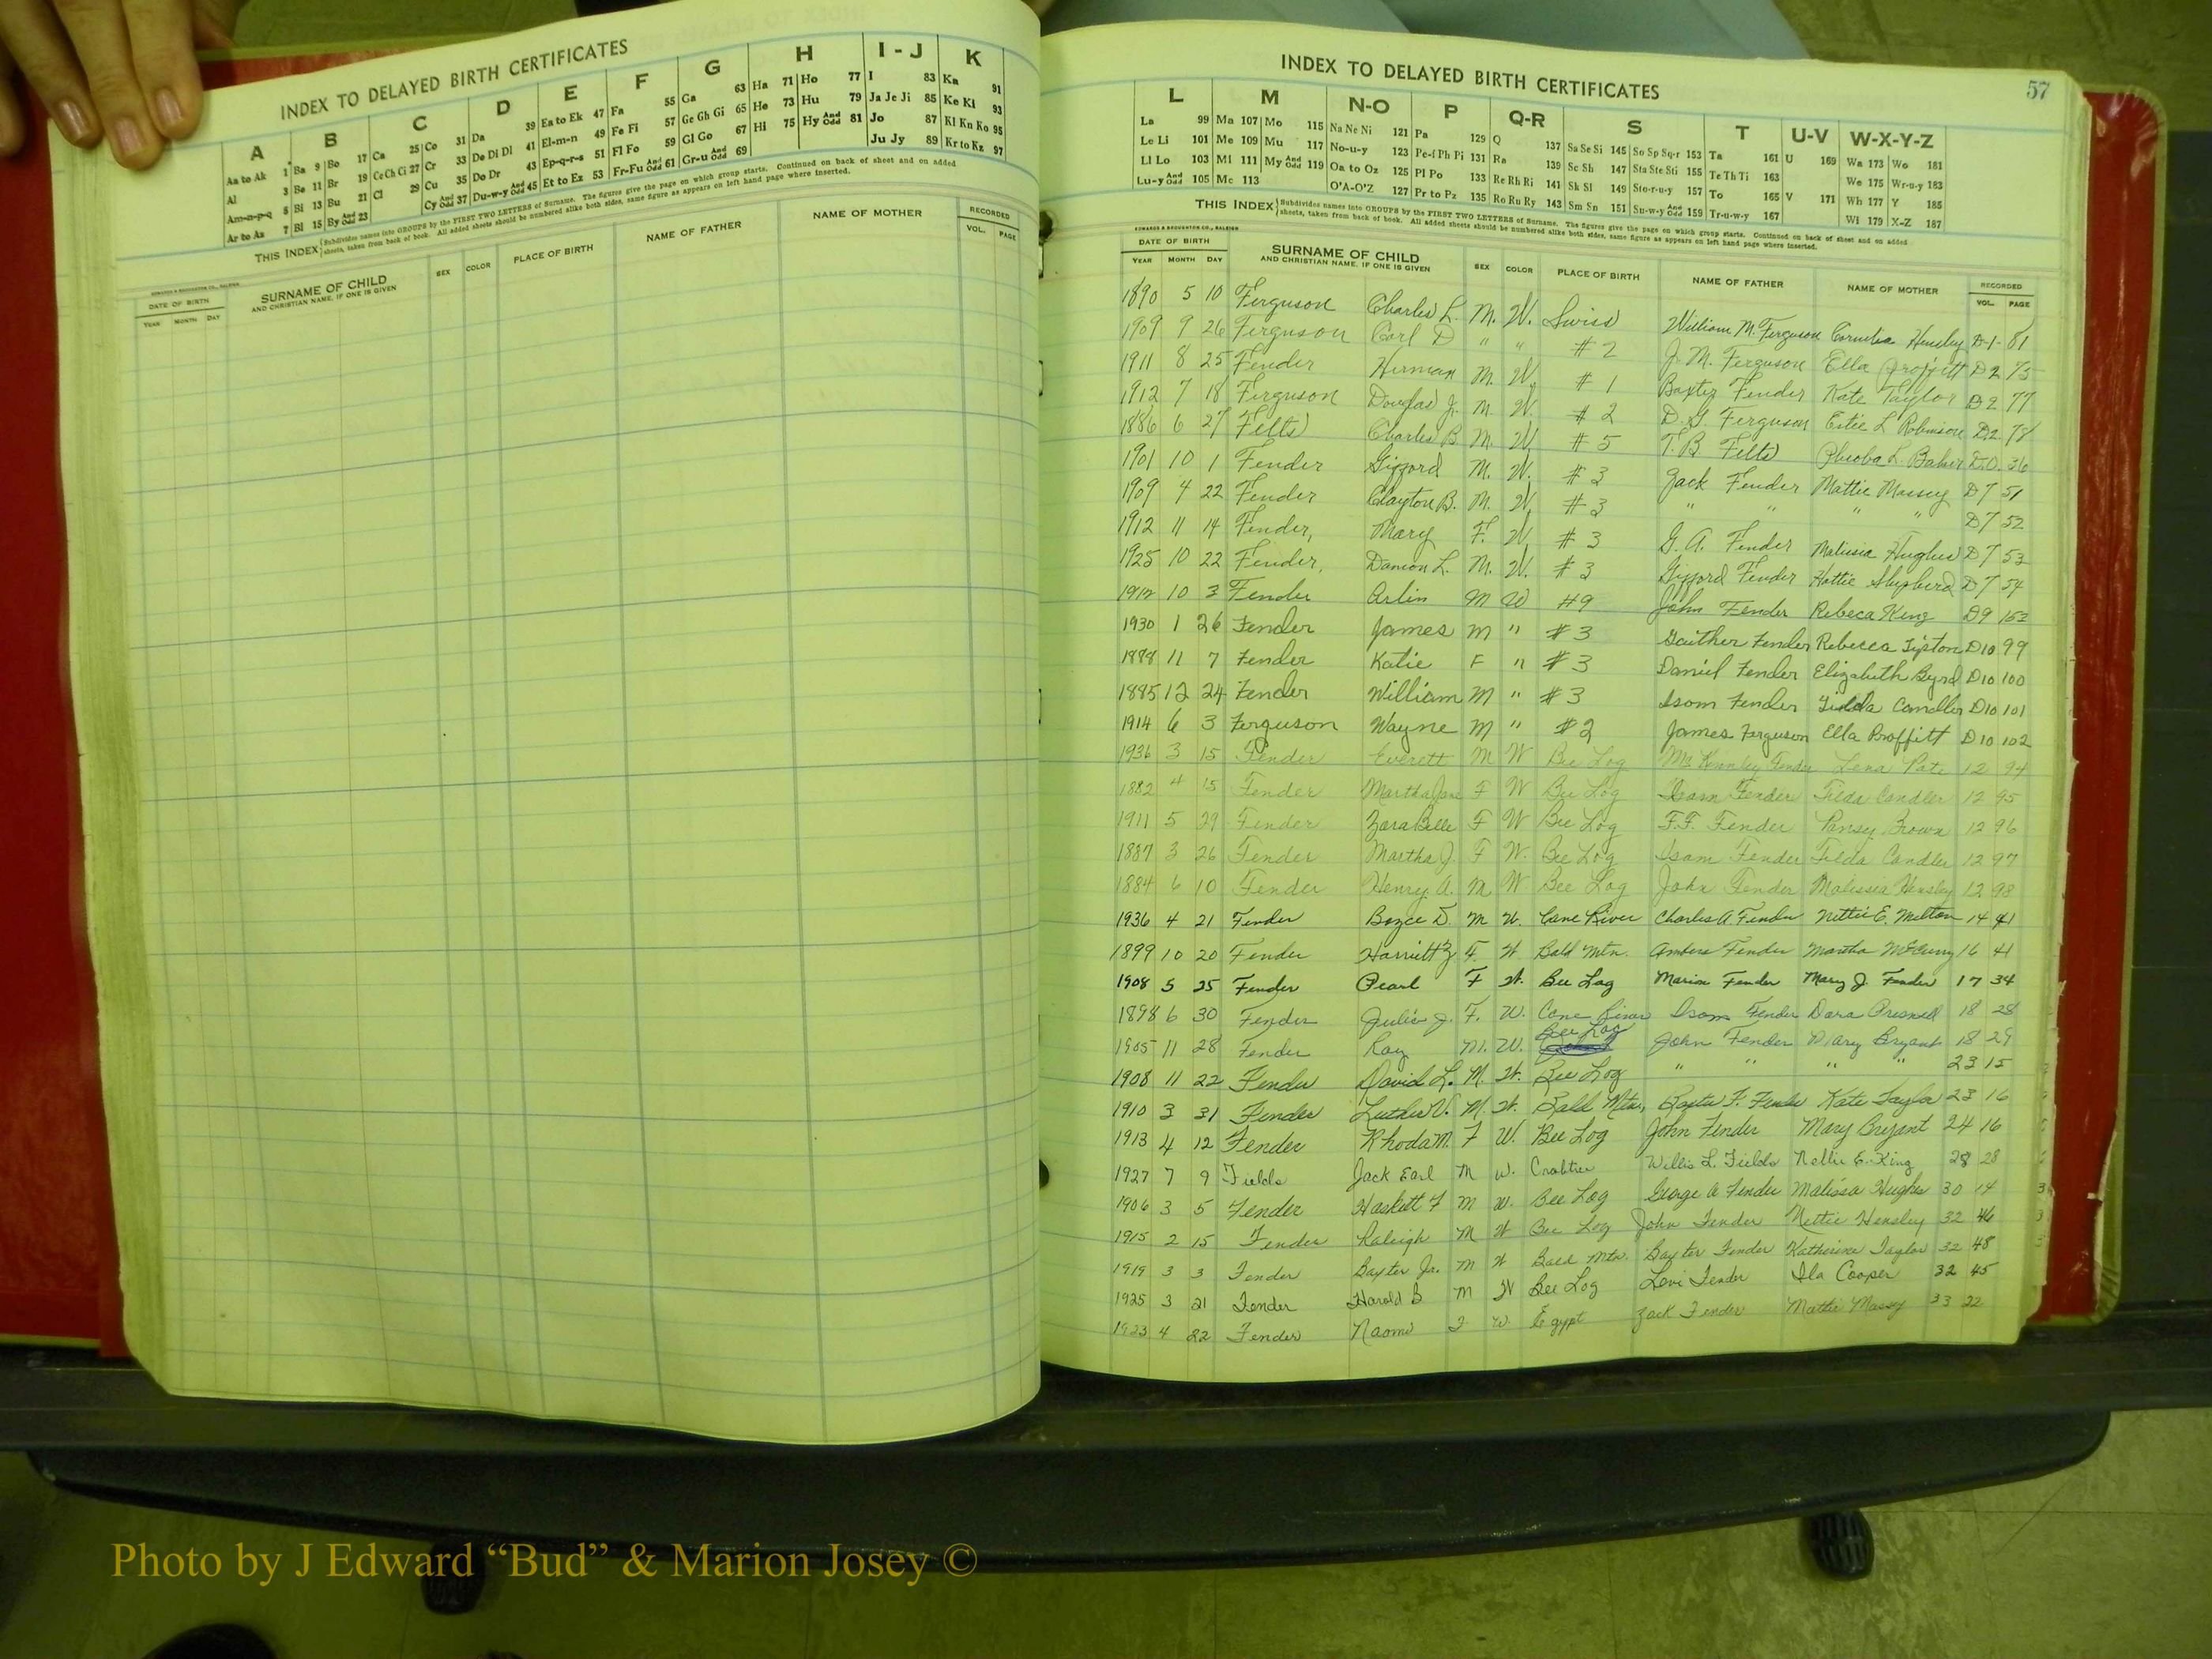 INDEX TO DELAYED BIRTH CERTIFICATES
A B C D E F G H I - J K
Aa to Ak 1 Ba 9 Bo 17 Ca 25 Co 31 Da 39 Ea to Ek 47 Fa 55 Ga 63 Ha 71 Ho 77 I 83 Ka 91
Al 3 Be 11 Br 19 Ce Ch Ci 27 Cr 33 De Di Dl 41 El-m-n 49 Fe Fi 57 Ge Gh Gi 65 He 73 Hu 79 Ja Je Ji 85 Ke Ki 93
Am-n-p-q 5 Bi 13 Bu 21 Cl 29 Cu 35 Do Dr 43 Ep-q-r-s 51 Fl Fo 59 Gl Go 67 Hi 75 Hy And Odd 81 Jo 87 Kl Kn Ko 95
Ar to Az 7 Bl 15 By And Odd 23 Cy And Odd 37 Du-w-y And Odd 45 Et to Ez 53 Fr-Fu And Odd 61 Gr-u And Odd 69 Ju Jy 89 Kr to Kz 97
THIS INDEX Subdivides names into GROUPS by the FIRST TWO LETTERS of Surname. The figures give the page on which group starts. Continued on back of sheet and on added
sheets, taken from back of book. All added sheets should be numbered alike both sides, same figure as appears on left hand page where inserted.
EDWARDS & BROUGHTON CO., RALEIGH
DATE OF BIRTH SURNAME OF CHILD SEX COLOR PLACE OF BIRTH NAME OF FATHER NAME OF MOTHER RECORDED
YEAR MONTH DAY AND CHRISTIAN NAME, IF ONE IS GIVEN VOL. PAGE
57
INDEX TO DELAYED BIRTH CERTIFICATES
L M N-O P Q-R S T U-V W-X-Y-Z
La 99 Ma 107 Mo 115 Na Ne Ni 121 Pa 129 Q 137 Sa Se Si 145 So Sp Sq-r 153 Ta 161 U 169 Wa 173 Wo 181
Le Li 101 Me 109 Mu 117 No-u-y 123 Pe-f Ph Pi 131 Ra 139 Sc Sh 147 Sta Ste Sti 155 Te Th Ti 163 We 175 Wr-u-y 183
Ll Lo 103 Mi 111 My And Odd 119 Oa to Oz 125 Pl Po 133 Re Rh Ri 141 Sk Sl 149 Sto-r-u-y 157 To 165 V 171 Wh 177 Y 185
Lu-y And Odd 105 Mc 113 O'A-O'Z 127 Pr to Pz 135 Ro Ru Ry 143 Sm Sn 151 Su-w-y And Odd 159 Tr-u-w-y 167 Wi 179 X-Z 187
THIS INDEX Subdivides names into GROUPS by the FIRST TWO LETTERS of Surname. The figures give the page on which group starts. Continued on back of sheet and on added
sheets, taken from back of book. All added sheets should be numbered alike both sides, same figure as appears on left hand page where inserted.
EDWARDS & BROUGHTON CO., RALEIGH
DATE OF BIRTH SURNAME OF CHILD SEX COLOR PLACE OF BIRTH NAME OF FATHER NAME OF MOTHER RECORDED
YEAR MONTH DAY AND CHRISTIAN NAME, IF ONE IS GIVEN VOL. PAGE
1890 5 10 Ferguson Charles L. M. W. Swiss William M. Ferguson Cornelia Hensley D-1- 81
1909 9 26 Ferguson Carl D " " #2 J. M. Ferguson Ella Proffitt D2 75
1911 8 25 Fender Herman M. W. #1 Baxter Fender Kate Taylor D2 77
1912 7 18 Ferguson Douglas Jr. M. W. #2 D. G. Ferguson Estie L Robinson D2 78
1886 6 27 Felts Charles B. M. W. #5 T. B. Felts Pheoba L. Baker 36
1901 10 1 Fender Gifford M. W. #3 Zack Fender Mattie Massey D7 51
1909 4 22 Fender Clayton B. M. W. #3 " " " " D7 52
1912 11 14 Fender, Mary F. W. #3 G. A. Fender Malissia Hughes D7 53
1925 10 22 Fender, Damon L. M. W. #3 Gifford Fender Hattie Shepherd D7 54
1912 10 3 Fender Arlin M W #9 John Fender Rebeca King D9 153
1930 1 26 Fender James M " #3 Gaither Fender Rebecca Tipton D10 99
1888 11 7 Fender Katie F " #3 Daniel Fender Elizabeth Byrd D10 100
1885 12 24 Fender William M " #3 Isom Fender Tilda Candler D10 101
1914 6 3 Ferguson Wayne M " #2 James Ferguson Ella Proffitt D10 102
1936 3 15 Fender Everett M W Bee Log Mc Kinnley Fender Lena Pate 12 94
1882 4 15 Fender Martha Jane F W Bee Log Isam Fender Tilda Candler 12 95
1911 5 29 Fender Zara Belle F W Bee Log F.F. Fender Pansy Brown 12 96
1887 3 26 Fender Martha J. F W. Bee Log Isam Fender Tilda Candler 12 97
1884 6 10 Fender Henry A. M W Bee Log John Fender Malissia Hensley 12 98
1936 4 21 Fender Boyce D. M W. Cane River Charles A Fender Nettie E. Melton 14 41
1899 10 20 Fender Harriett Z F. W Bald Mtn. Ambers Fender Martha McCurry 16 41
1908 5 25 Fender Pearl F W. Bee Log Marion Fender Mary J. Fender 17 34
1898 6 30 Fender Julia J. F. W. Cane River Isom Fender Dara Presnell 18 28
1905 11 28 Fender Ray M. W. Bee Log John Fender Mary Bryant 18 29
1908 11 22 Fender David L. M. W. Bee Log " " " " 23 15
1910 3 31 Fender Luther V. M. W. Bald Mtn, Baxter F. Fender Kate Taylor 23 16
1913 4 12 Fender Rhoda M. F W. Bee Log John Fender Mary Bryant 24 16
1927 7 9 Fields Jack Earl M W. Crabtree Willis L. Fields Nellie E. King 28 28
1906 3 5 Fender Haskett F M W. Bee Log George A Fender Malissa Hughes 30 14
1915 2 15 Fender Raleigh M W Bee Log John Fender Nettie Hensley 32 46
1919 3 3 Fender Baxter Jr. M W Bald Mtn. Baxter Fender Katherine Taylor 32 48
1925 3 21 Fender Harold B M W Bee Log Levi Fender Ila Cooper 32 45
1923 4 22 Fender Naomi F W Egypt Zack Fender Mattie Massey 33 22
Photo by J Edward “Bud” & Marion Josey ©